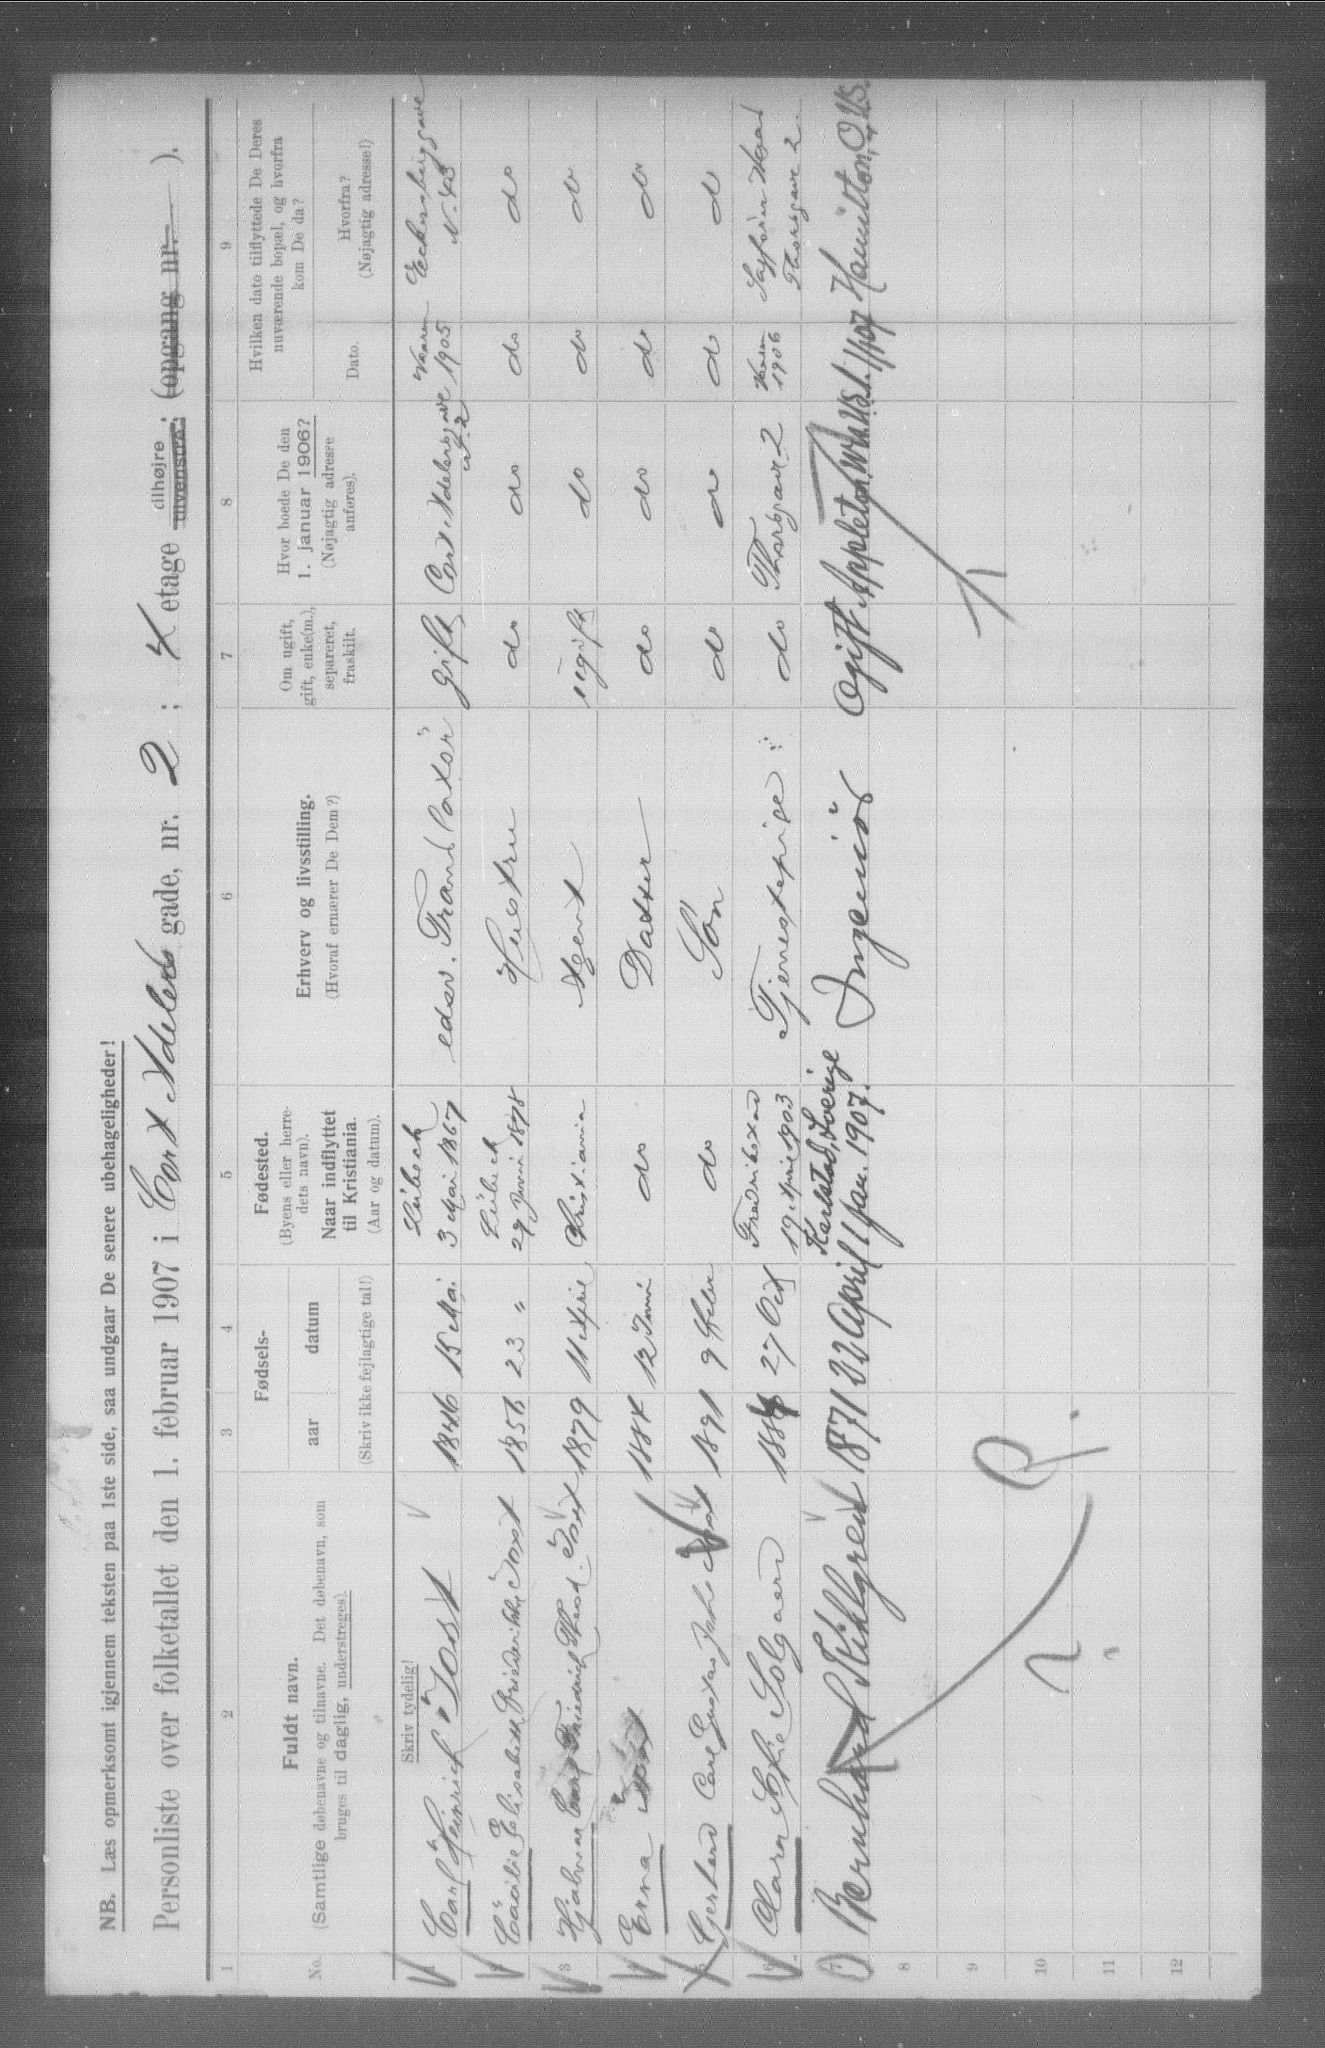 NB. Læs opmerksomt igjennem teksten paa 1ste side, saa undgaar De senere ubehageligheder!
Personliste over folketallet den 1. februar 1907 i Cort Adelers gade, nr. 2 ; 4 etage tilhøjre tilvenstre ; (opgang nr. ).
1 2 3 4 5 6 7 8 9
No.
Fuldt navn.
(Samtlige døbenavne og tilnavne. Det døbenavn, som
bruges til daglig, understreges).
Fødsels-
aar datum
(Skriv ikke fejlagtige tal!)
Fødested.
(Byens eller herre-
dets navn).
Naar indflyttet
til Kristiania.
(Aar og datum).
Erhverv og livsstilling.
(Hvoraf ernærer De Dem?)
Om ugift,
gift, enke(m.),
separeret,
fraskilt.
Hvor boede De den
1. januar 1906?
(Nøjagtig adresse
anføres).
Hvilken dato tilflyttede De Deres
nuværende bopæl, og hvorfra
kom De da?
Dato.
Hvorfra?
(Nøjagtig adresse!)
Skriv tydelig!
1 Carl Heinrich Jost 1846 15 Mai Lübeck 3 Mai 1867 edsv. Translatør gift Cort Adelersgave No. 2 Vaaren 1905 Eckersbergsgave N. 43
2 Cäcilie Elisabeth Friederikke Jost 1856 23 " Lübeck 27 Juni 1878 Hustru do do do do
3 Hjalmar Friedrich Theod. Jost 1879 11 April Christiania Agent ugift do do do
4 Erna 1884 12 Juni do Datter do do do do
5 Gerhard Carl Gustav 1891 9 Febr do Søn do do do do
6 Clara Sofie Solgaard 27 Oct Fredrikstad 19 April 1903 Tjenestepige do Thorsgave 2 Vaaren 1906 Thorsgave 2.
7 Bernhard Stihlgren 1871 22 April Karlstad, Sverige 1 Jan. 1907. Ingeniör Ogift Appleton, U.S. 1/1 07 Hamilton, O, U.S.
8
9
10
11
12